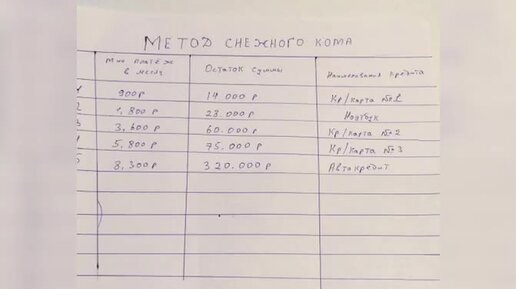 МЕТОД СНЕЖНОГО КОМА
Мин платёж в месяц Остаток суммы Наименования кредита
900 р 19.000 р Кр/карта №1
2 1,800 р 28.000 р Ноутбук
3 3,600 р 60.000 р Кр/карта №2
5,800 р 75.000 р Кр/карта №3
8,300 р 320.000 р Автокредит